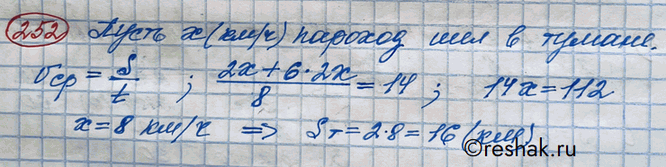 252 Пусть x (км/ч) пароход шел в тумане.
Vср = S/t ; (2x + 6·2x)/8 = 14 ; 14x = 112
x = 8 км/ч => Sт = 2·8 = 16 (км)
reshak.ru